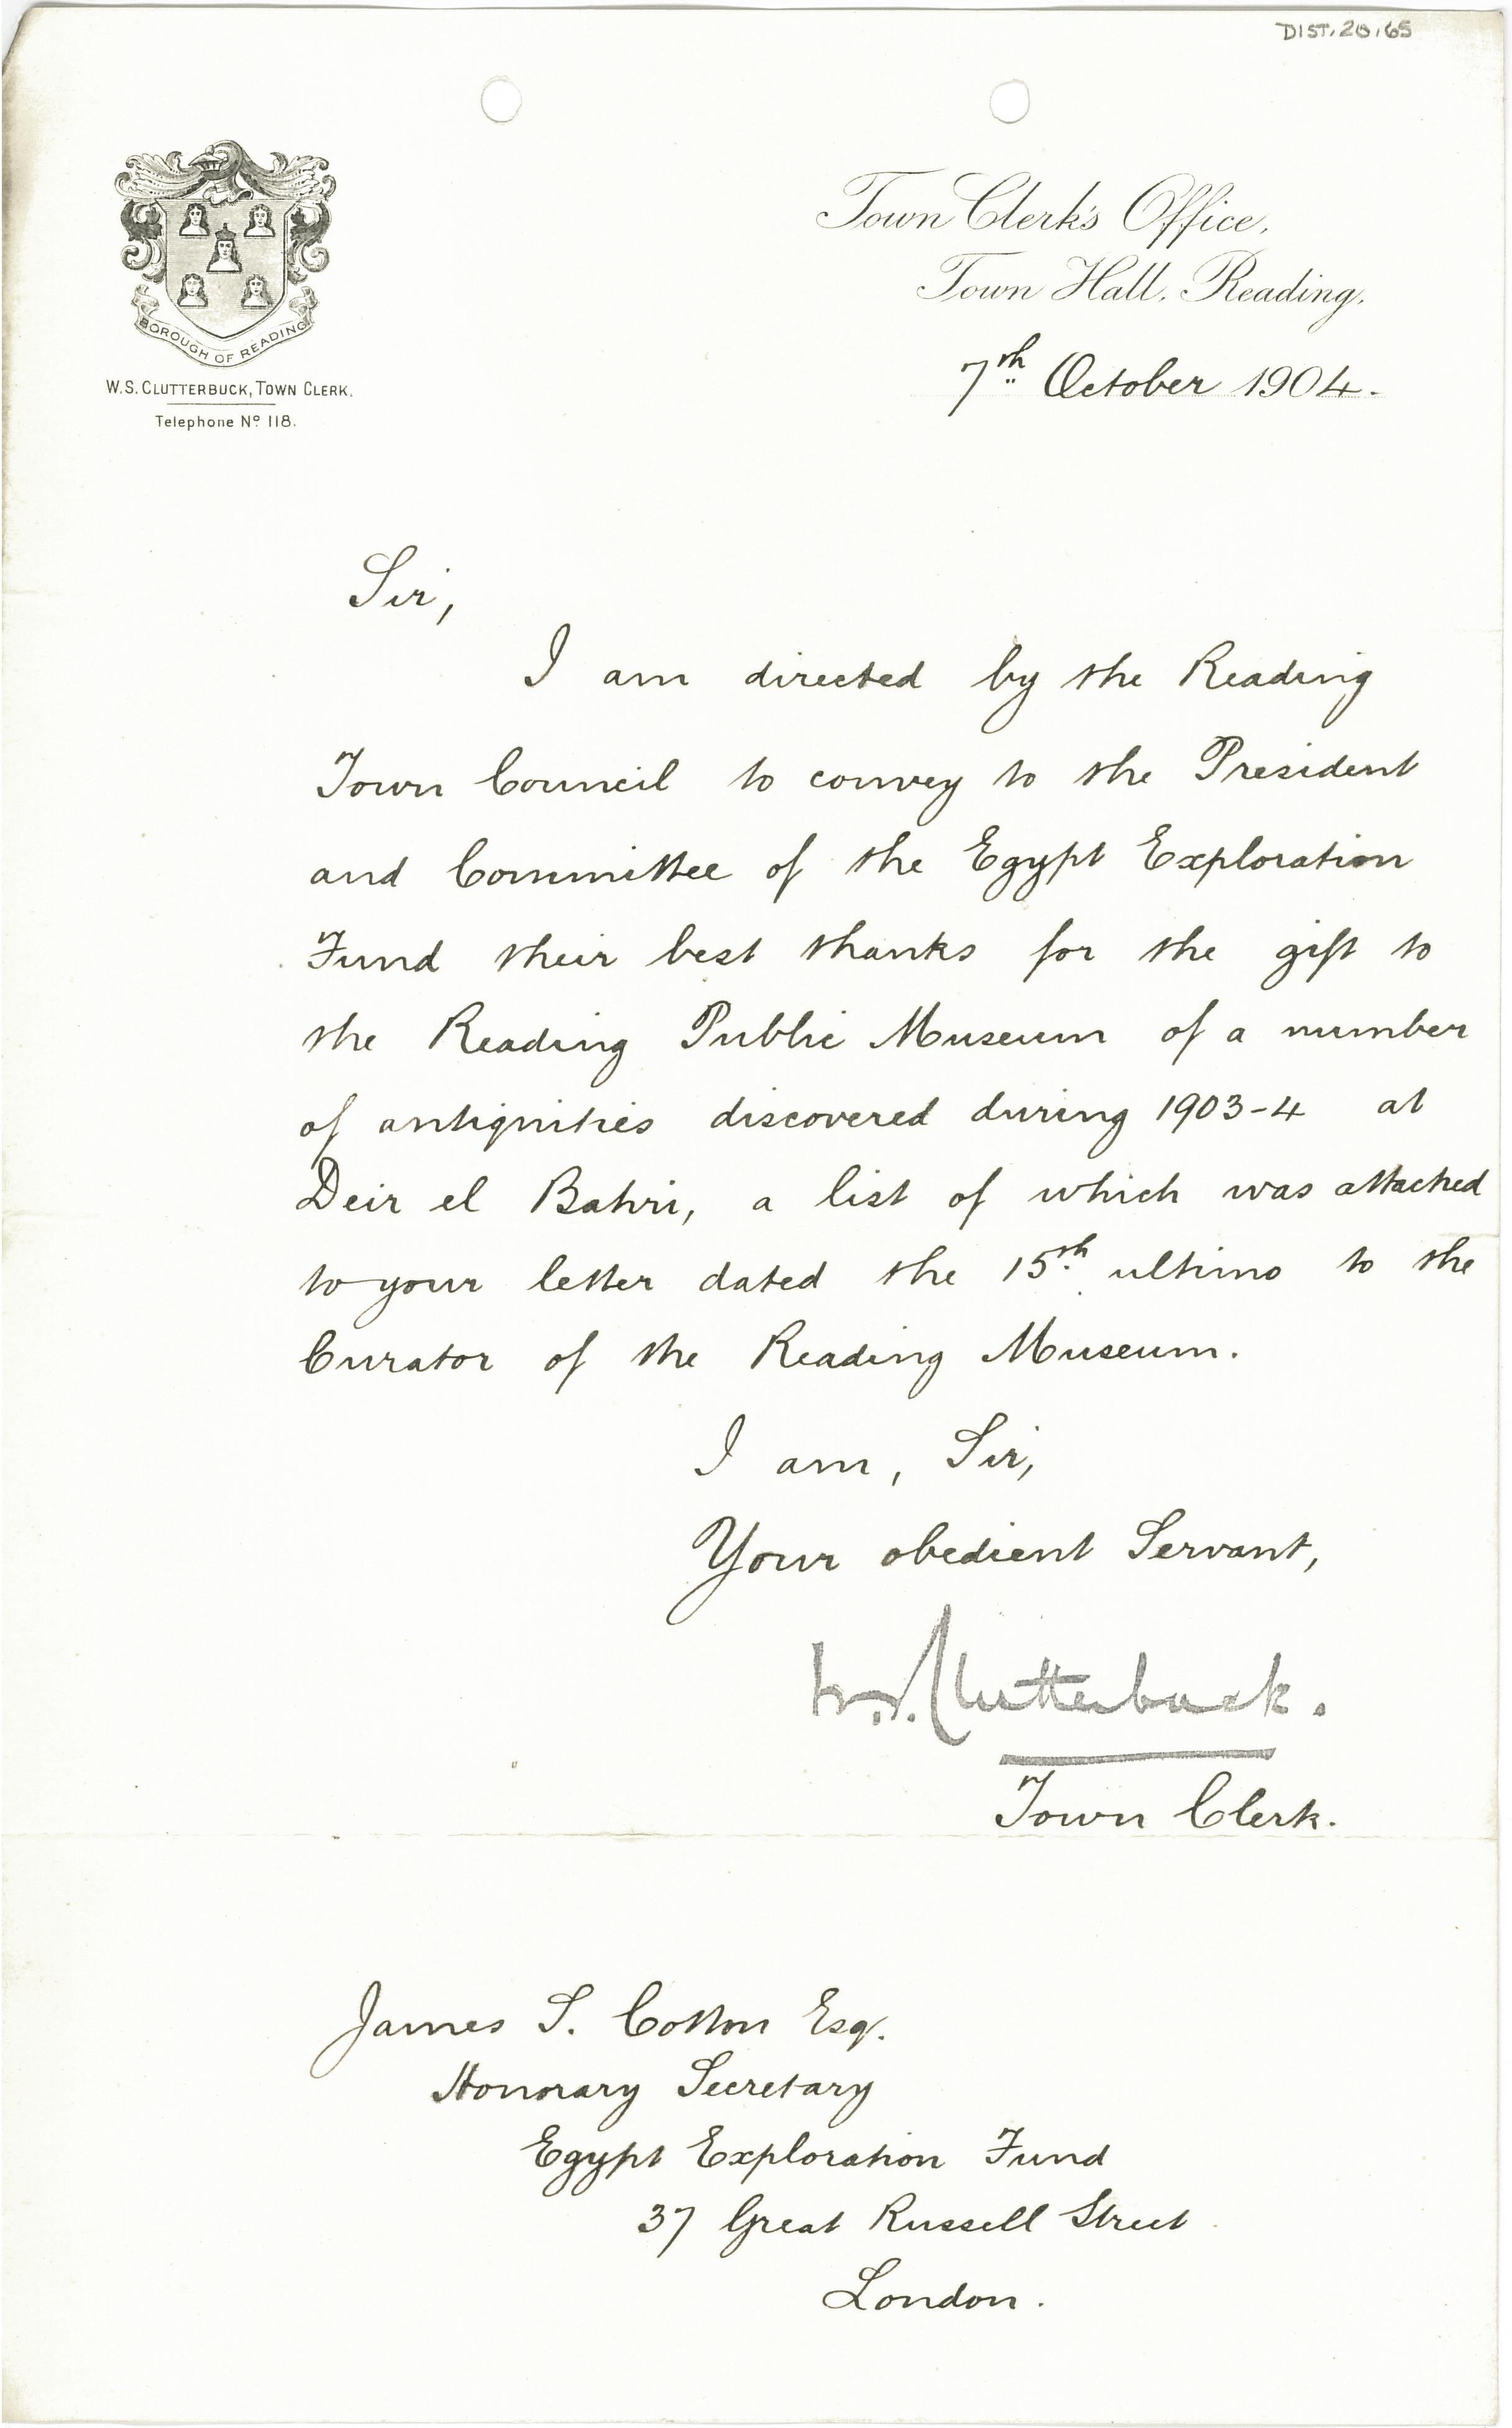 DIST.20.65
BOROUGH OF READING
W.S. CLUTTERBUCK, TOWN CLERK.
Telephone Nº 118.
Town Clerk's Office,
Town Hall, Reading.
7th October 1904.
Sir,
I am directed by the Reading
Town Council to convey to the President
and Committee of the Egypt Exploration
Fund their best thanks for the gift to
the Reading Public Museum of a number
of antiquities discovered during 1903-4 at
Deir el Bahri, a list of which was attached
to your letter dated the 15th ultimo to the
Curator of the Reading Museum.
I am, Sir,
Your obedient Servant,
W.S. Clutterbuck.
Town Clerk.
James S. Cotton Esq.
Honorary Secretary
Egypt Exploration Fund
37 Great Russell Street
London.